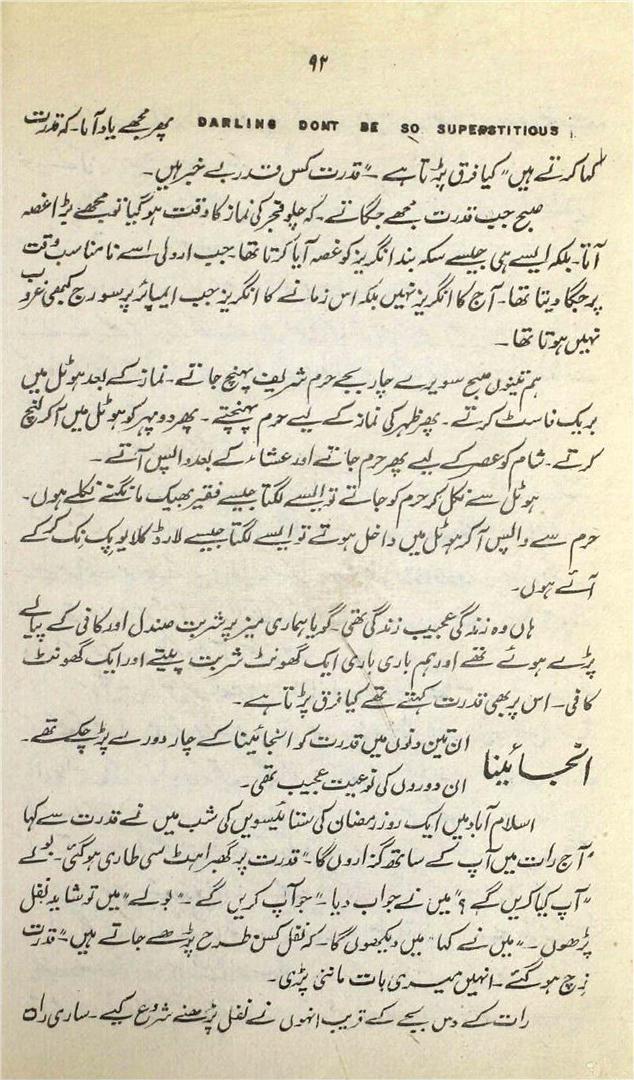 ۹۲
DARLING DONT BE SO SUPERSTITIOUS پھر مجھے یاد آتا۔ کہ قدرت
کہا کرتے ہیں " کیا فرق پڑتا ہے ۔" قدرت کس قدر بے خبر ہیں۔
صبح جب قدرت مجھے جگاتے۔ کہ چلو فجر کی نماز کا وقت ہو گیا تو مجھے بڑا غصہ
آتا۔ بلکہ ایسے ہی جیسے سکہ بند انگریز کو غصہ آیا کرتا تھا۔ جب اردلی اسے نا مناسب وقت
پر جگا دیتا تھا۔ آج کا انگریز نہیں بلکہ اس زمانے کا انگریز جب ایمپائر پر سورج کبھی غروب
نہیں ہوتا تھا۔
ہم تینوں صبح سویرے چار بجے حرم شریف پہنچ جاتے۔ نماز کے بعد ہوٹل میں
بریک فاسٹ کرتے۔ پھر ظہر کی نماز کے لیے حرم پہنچتے۔ پھر دوپہر کو ہوٹل میں آ کر لنچ
کرتے۔ شام کو عصر کے لیے پھر حرم جاتے اور عشاء کے بعد واپس آتے۔
ہوٹل سے نکل کر حرم کو جاتے تو ایسے لگتا جیسے فقیر بھیک مانگنے نکلے ہوں۔
حرم سے واپس آ کر ہوٹل میں داخل ہوتے تو ایسے لگتا جیسے لارڈ کلایو پک نک کر کے
آئے ہوں۔
ہاں وہ زندگی عجیب زندگی تھی۔ گویا ہماری میز پر شربت صندل اور کافی کے پیالے
پڑے ہوئے تھے اور ہم باری باری ایک گھونٹ شربت پیتے اور ایک گھونٹ
کافی۔ اس پر بھی قدرت کہتے تھے کیا فرق پڑتا ہے۔
انجائینا
ان تین دنوں میں قدرت کو انجائینا کے چار دورے پڑ چکے تھے۔
ان دوروں کی نوعیت عجیب تھی۔
اسلام آباد میں ایک روز رمضان کی ستائیسویں کی شب میں نے قدرت سے کہا
"آج رات میں آپ کے ساتھ گزاروں گا۔" قدرت پر گھبراہٹ سی طاری ہو گئی۔ بولے
"آپ کیا کریں گے ؟" میں نے جواب دیا۔ "جو آپ کریں گے ۔" بولے "میں تو شاید نفل
پڑھوں ۔" میں نے کہا "میں دیکھوں گا۔ کہ نفل کس طرح پڑھے جاتے ہیں۔" قدرت
زچ ہو گئے ۔ انہیں میری بات ماننی پڑی۔
رات کے دس بجے کے قریب انہوں نے نفل پڑھنے شروع کیے ۔ ساری رات